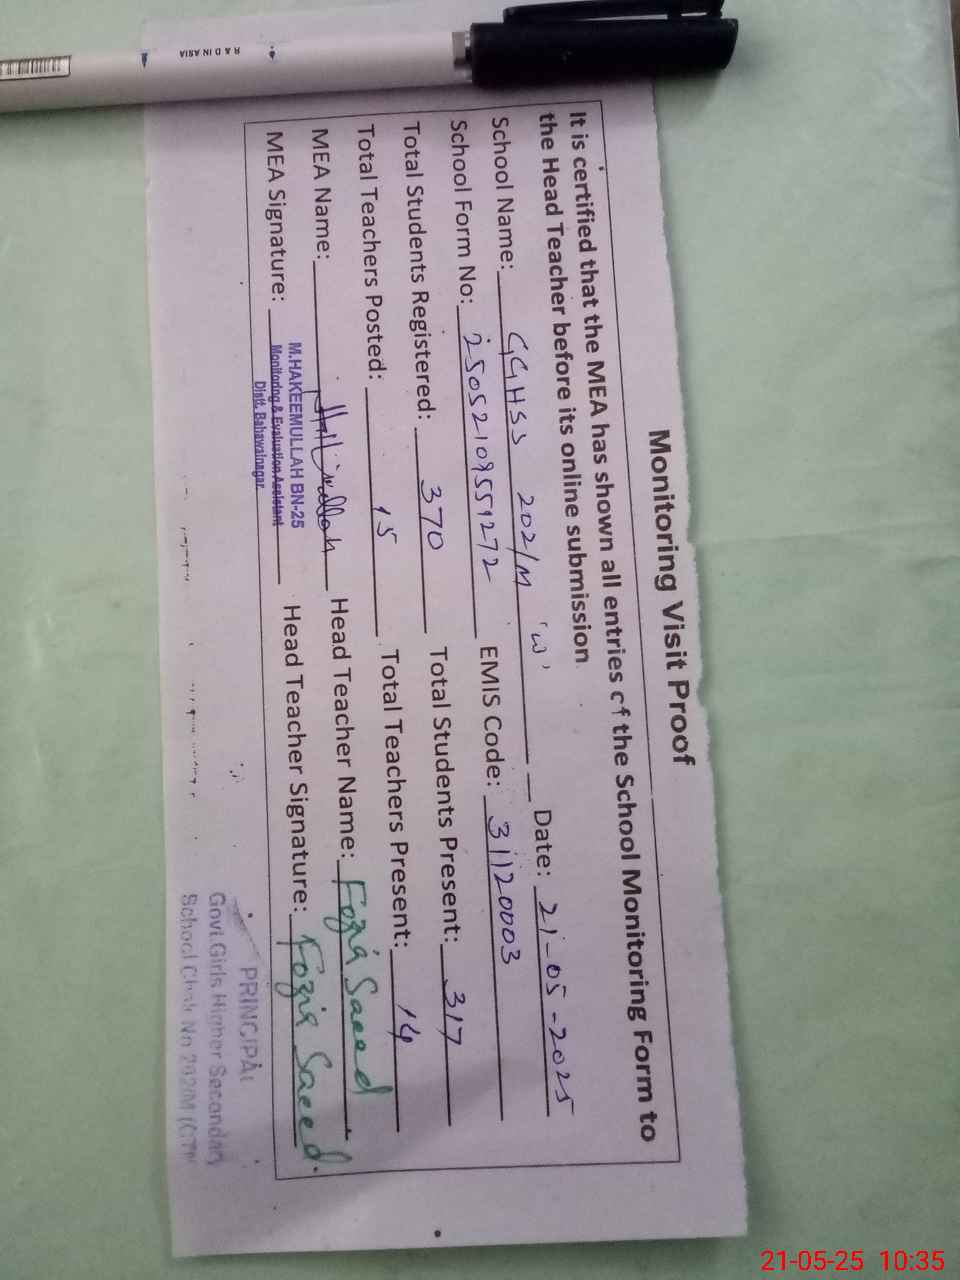 Monitoring Visit Proof
It is certified that the MEA has shown all entries of the School Monitoring Form to
the Head Teacher before its online submission
School Name: GGHSS 202/M 'W' Date: 21-05-2025
School Form No: 25052109559272 EMIS Code: 31120003
Total Students Registered: 370 Total Students Present: 317
Total Teachers Posted: 15 Total Teachers Present: 14
MEA Name: Head Teacher Name: Fozia Saeed
MEA Signature: Head Teacher Signature: Fozia Saeed.
M.HAKEEMULLAH BN-25
Monitoring & Evaluation Assistant
Distt. Bahawalnagar.
PRINCIPAL
Govt.Girls Higher Secondary
School Chak No 202/M
R A D IN ASIA
21-05-25 10:35